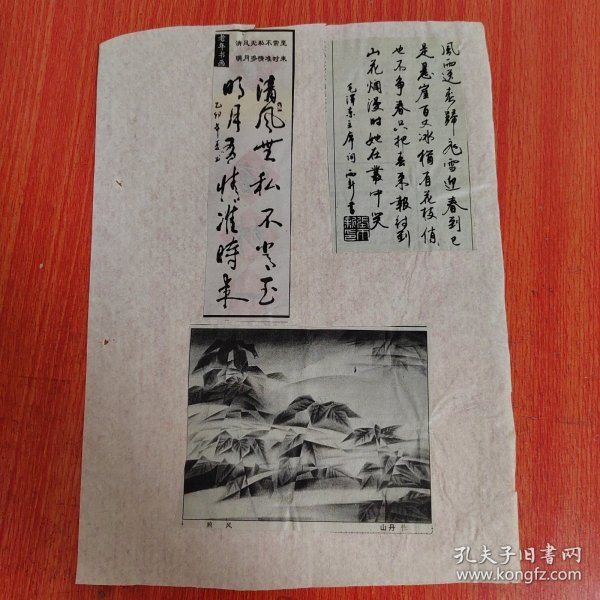 老年书画
清风无私不常至
明月多情准时来
清風無私不常至
明月多情准時來
風雨送春歸飛雪迎春到已
是懸崖百丈冰猶有花枝俏
也不爭春只把春來報待到
山花爛漫時她在叢中笑
毛澤東主席詞 書
风
山丹 作
孔夫子旧书网
www.kongfz.com